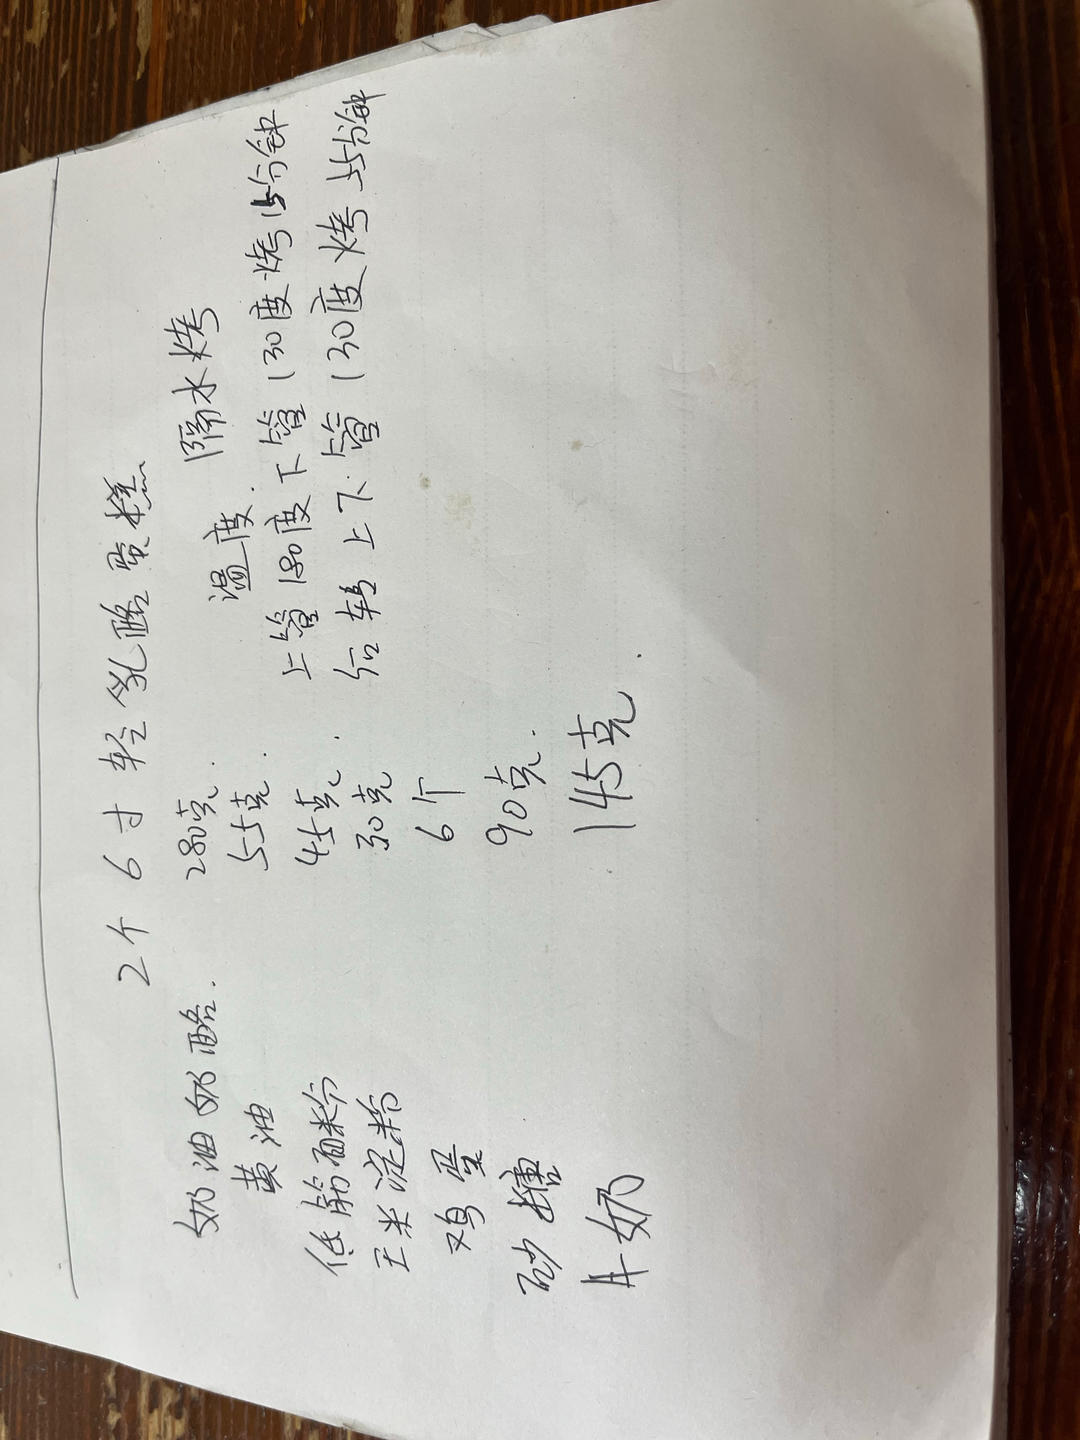 2个 6寸 轻乳酪蛋糕
奶油奶酪. 280克. 隔水烤
黄油 55克. 温度.
低筋面粉 45克. 上管180度下管130度烤15分钟
玉米淀粉 30克 后转上下管130度烤55分钟
鸡蛋 6个
砂糖 90克.
牛奶 145克.